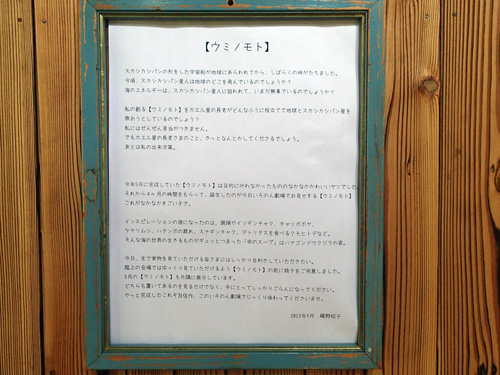 【ウミノモト】
スカシカシパンの形をした宇宙船が地球にあらわれてから、しばらくの時がたちました。
今頃、スカシカシパン星人は地球のどこを飛んでいるのでしょうか？
海のエネルギーは、スカシカシパン星人に狙われて、いまだ無事でいるのでしょうか？
私の創る【ウミノモト】をカエル星の長老がどんなふうに役立てて地球とスカシカシパン星を
救おうとしているのでしょう？
私にはぜんぜん見当がつきません。
でもカエル星の長老さまのこと、きっとなんとかしてくださるでしょう。
あとは私の出来次第。
今年5月に完成していた【ウミノモト】は目的に叶わなかったもののなかなかかわいいヤツでした。
それから4ヶ月の時間をもらって、誕生したのが今日いそのん劇場でお見せする【ウミノモト】
これがなかなかすごい子で、
インスピレーションの源になったのは、珊瑚やイソギンチャク、チャツボボヤ、
ケヤリムシ、ハタンポの群れ、スナギンチャク、デトリタスを食べるウモヒトデなど。
そんな海の世界の生きるものがギュッとつまった「命のスープ」はハナゴンドウクジラの姿。
今日、生で実物を見ていただける皆さまにはしっかり目利きしていただきたい。
階上の会場ではゆっくり見ていただけるよう【ウミノモト】の前に椅子をご用意しました。
5月の【ウミノモト】も片隅に展示しています。
どちらも置いてあるのを見るだけでなく、手にとってしっかりごらんになってください。
やっと完成したこれぞ自信作、このいそのん劇場でじっくり味わってくださいませ。
2023年9月 磯野昭子